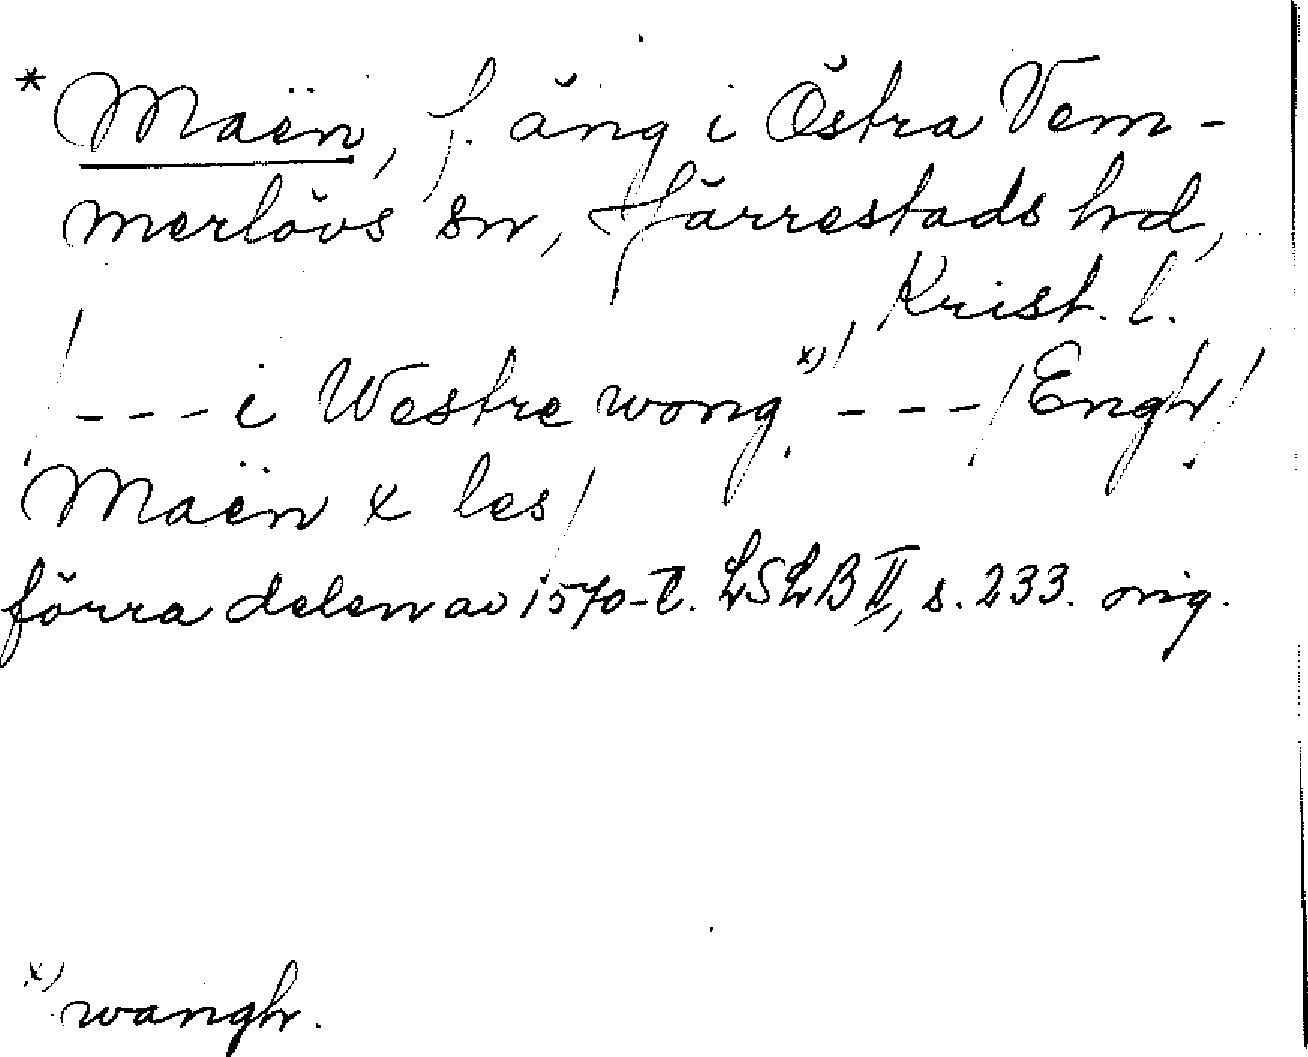 * Maën, f. äng i Östra Vem-
merlövs sn, Järrestads hd,
Krist. l.
/---i Westre wong x) / --- / Engh /
Maën x les /
förra delen av 1570-t. LSLB II, s. 233. orig.
x) wangh.